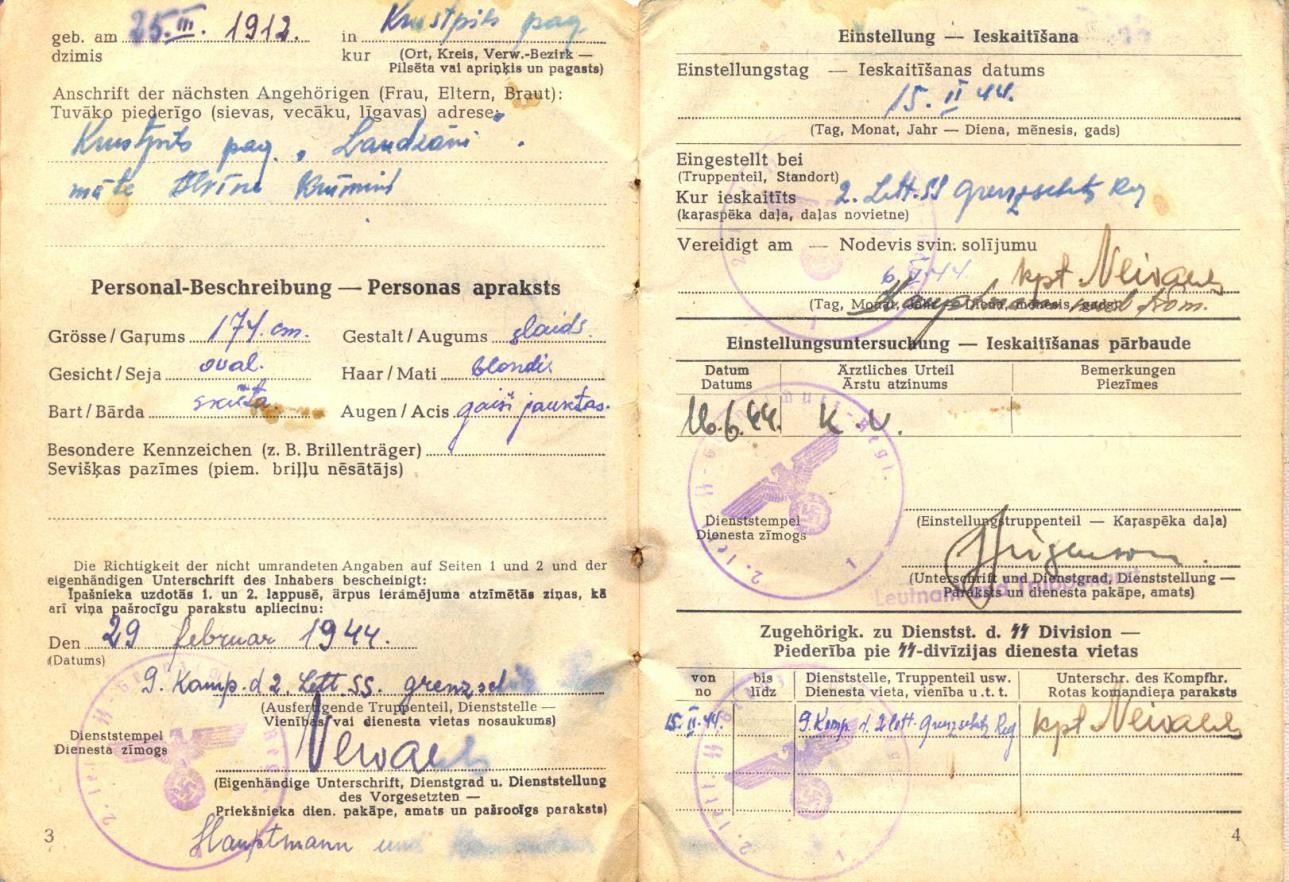 geb. am 25.III. 1912. in Krustpils pag
dzimis kur (Ort, Kreis, Verw.-Bezirk —
Pilsēta vai apriņķis un pagasts)
Anschrift der nächsten Angehörigen (Frau, Eltern, Braut):
Tuvāko piederīgo (sievas, vecāku, līgavas) adrese:
Krustpils pag.
māte Krūmiņš
Personal-Beschreibung — Personas apraksts
Grösse/Garums 174 cm. Gestalt/Augums slaids
Gesicht/Seja oval. Haar/Mati blondi
Bart/Bārda skūta Augen/Acis gaiši jauktas.
Besondere Kennzeichen (z. B. Brillenträger)
Sevišķas pazīmes (piem. briļļu nēsātājs)
Die Richtigkeit der nicht umrandeten Angaben auf Seiten 1 und 2 und der
eigenhändigen Unterschrift des Inhabers bescheinigt:
Īpašnieka uzdotās 1. un 2. lappusē, ārpus ierāmējuma atzīmētās ziņas, kā
arī viņa pašrocīgu parakstu apliecinu:
Den 29 februar 1944.
(Datums)
9. Komp. d 2. Lett. SS. grenzsch
(Ausfertigende Truppenteil, Dienststelle —
Vienības vai dienesta vietas nosaukums)
Dienststempel
Dienesta zīmogs
(Eigenhändige Unterschrift, Dienstgrad u. Dienststellung
des Vorgesetzten —
Priekšnieka dien. pakāpe, amats un pašrocīgs paraksts)
Hauptmann und
3
Einstellung — Ieskaitīšana
Einstellungstag — Ieskaitīšanas datums
15. II 44.
(Tag, Monat, Jahr — Diena, mēnesis, gads)
Eingestellt bei
(Truppenteil, Standort)
Kur ieskaitīts 2. Lett. SS Grenzschutz Reg
(kaŗaspēka daļa, daļas novietne)
Vereidigt am — Nodevis svin. solījumu
kpt
(Tag, Monat, Jahr — Diena, mēnesis, gads)
Einstellungsuntersuchung — Ieskaitīšanas pārbaude
Datum Ärztliches Urteil Bemerkungen
Datums Ārstu atzinums Piezīmes
16.6.44. K. v.
Dienststempel
Dienesta zīmogs
(Einstellungstruppenteil — Kaŗaspēka daļa)
(Unterschrift und Dienstgrad, Dienststellung —
Paraksts un dienesta pakāpe, amats)
Leutnant
Zugehörigk. zu Dienstst. d. SS Division —
Piederība pie SS-divīzijas dienesta vietas
von bis Dienststelle, Truppenteil usw. Unterschr. des Kompfhr.
no līdz Dienesta vieta, vienība u. t. t. Rotas komandieŗa paraksts
15.II.44. 9 Komp. d. 2 lett. Grenzschtz Reg kpt
4